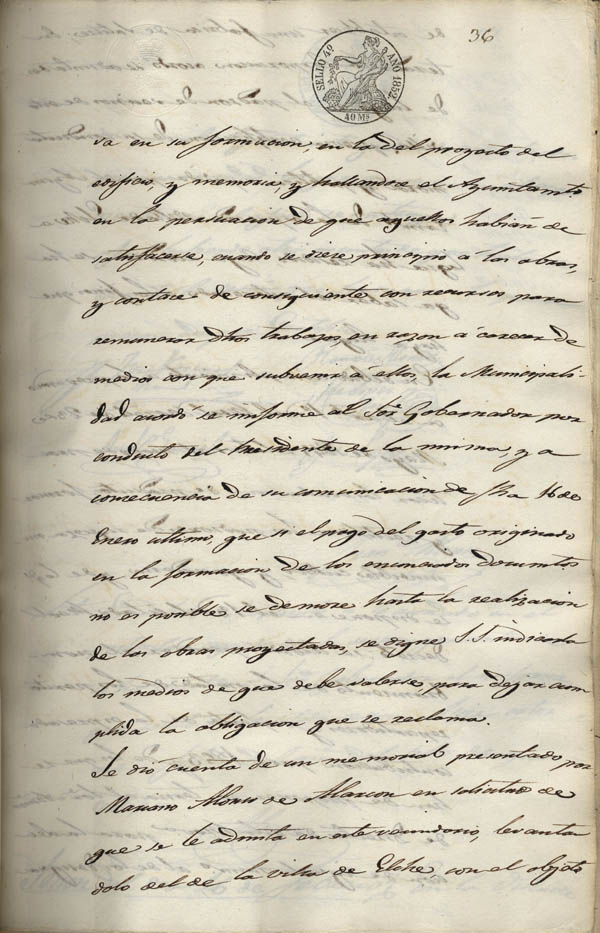 36
SELLO 4º AÑO 1852.
40 Ms
sa en su formacion, en la del proyecto del
edificio, y memoria, y hallandose el Ayuntamto
en la persuacion de que aquellos habian de
satisfacerse, cuando se diese principio á las obras,
y contase de consiguiente con recursos para
remunerar dhos trabajos, en razon á carecer de
medios con que subvenir á ellos, la Municipali-
dad acordó se informe al Sor Gobernador por
conducto del Presidente de la misma, y a
consecuencia de su comunicacion de fha 16 de
Enero ultimo, que si el pago del gasto originado
en la formacion de los enunciados documtos
no es posible se demore hasta la realizacion
de las obras proyectadas, se digne S.S. indicarla
los medios de que debe valerse, para dejar cum-
plida la obligacion que se reclama.
Se dió cuenta de un memorial presentado por
Mariano Alonso de Alarcon en solicitud de
que se le admita en este vecindario, levantan
dolo del de la villa de Elche, con el objeto